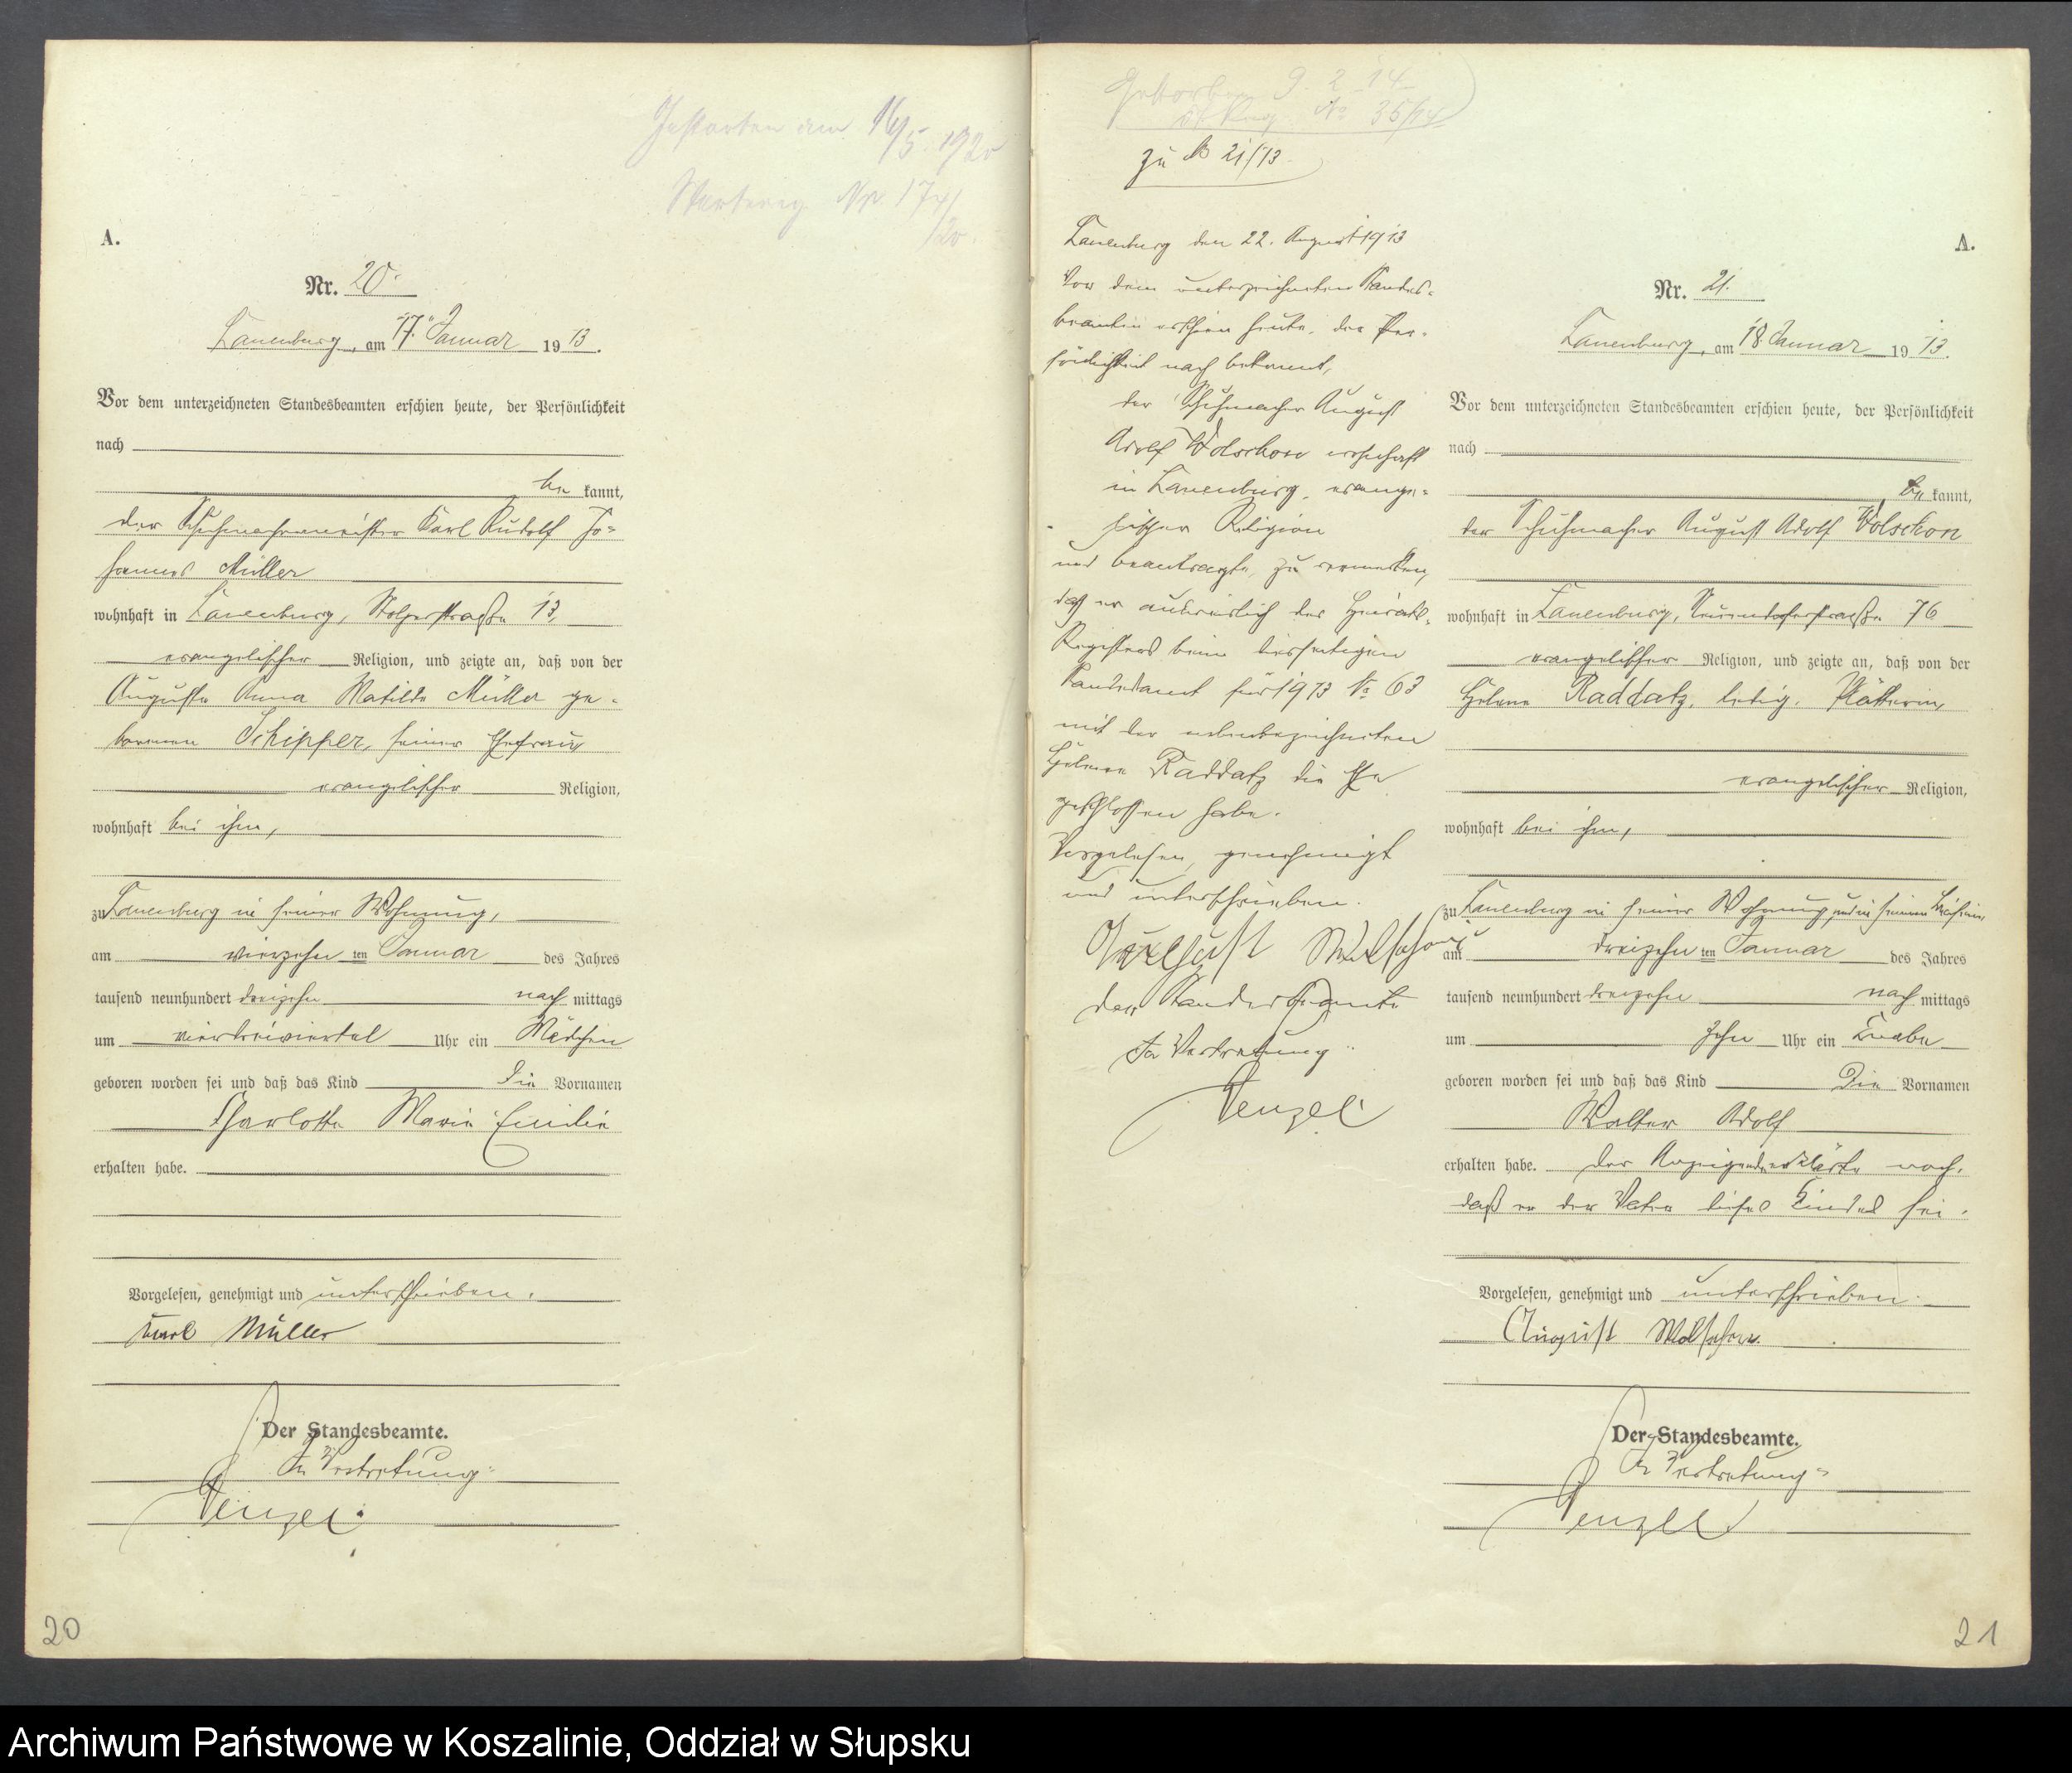 Gestorben am 14/5. 1920
Sterbereg Nr. 174/
/20.
A.
Nr. 20.
Lauenburg, am 17. Januar 1913.
Vor dem unterzeichneten Standesbeamten erschien heute, der Persönlichkeit
nach
be kannt,
der Schuhmachermeister Karl Rudolf Jo=
hannes Müller
wohnhaft in Lauenburg, Stolperstraße 13,
evangelischer Religion, und zeigte an, daß von der
Auguste Anna Matilde Müller ge=
borenen Schipper, seiner Ehefrau
evangelischer Religion,
wohnhaft bei ihm,
zu Lauenburg in seiner Wohnung,
am vierzehn ten Januar des Jahres
tausend neunhundert dreizehn nach mittags
um vierdreiviertel Uhr ein Mädchen
geboren worden sei und daß das Kind die Vornamen
Charlotte Marie Emilie
erhalten habe.
Vorgelesen, genehmigt und unterschrieben.
Karl Müller
Der Standesbeamte.
In Vertretung:
Penzel.
20
Gestorben 9. 2. 14
St. Reg. No 35/14
zu No 21/13.
Lauenburg den 22. August 1913
Vor dem unterzeichneten Standes=
beamten erschien heute, der Per=
sönlichkeit nach bekannt,
der Schuhmacher August
Adolf Wolschon wohnhaft
in Lauenburg, evange=
lischer Religion
und beantragte, zu vermerken,
daß er ausweislich des Heirats=
Registers beim diesseitigen
Standesamt für 1913 No 63
mit der nebenbezeichneten
Helene Raddatz die Ehe
geschlossen habe.
Vorgelesen, genehmigt
und unterschrieben.
August Wolschon
Der Standesbeamte
In Vertretung:
Penzel
A.
Nr. 21.
Lauenburg, am 18. Januar 1913.
Vor dem unterzeichneten Standesbeamten erschien heute, der Persönlichkeit
nach
be kannt,
der Schuhmacher August Adolf Wolschon
wohnhaft in Lauenburg, Neuendorferstraße 76
evangelischer Religion, und zeigte an, daß von der
Helene Raddatz, ledig, Plätterin,
evangelischer Religion,
wohnhaft bei ihm,
zu Lauenburg in seiner Wohnung, und in seinem Beisein,
am dreizehn ten Januar des Jahres
tausend neunhundert dreizehn nach mittags
um zehn Uhr ein Knabe
geboren worden sei und daß das Kind die Vornamen
Walter Adolf
erhalten habe. Der Anzeigende erklärte noch,
daß er der Vater dieses Kindes sei.
Vorgelesen, genehmigt und unterschrieben.
August Wolschon.
Der Standesbeamte.
In Vertretung:
Penzel
21
Archiwum Państwowe w Koszalinie, Oddział w Słupsku